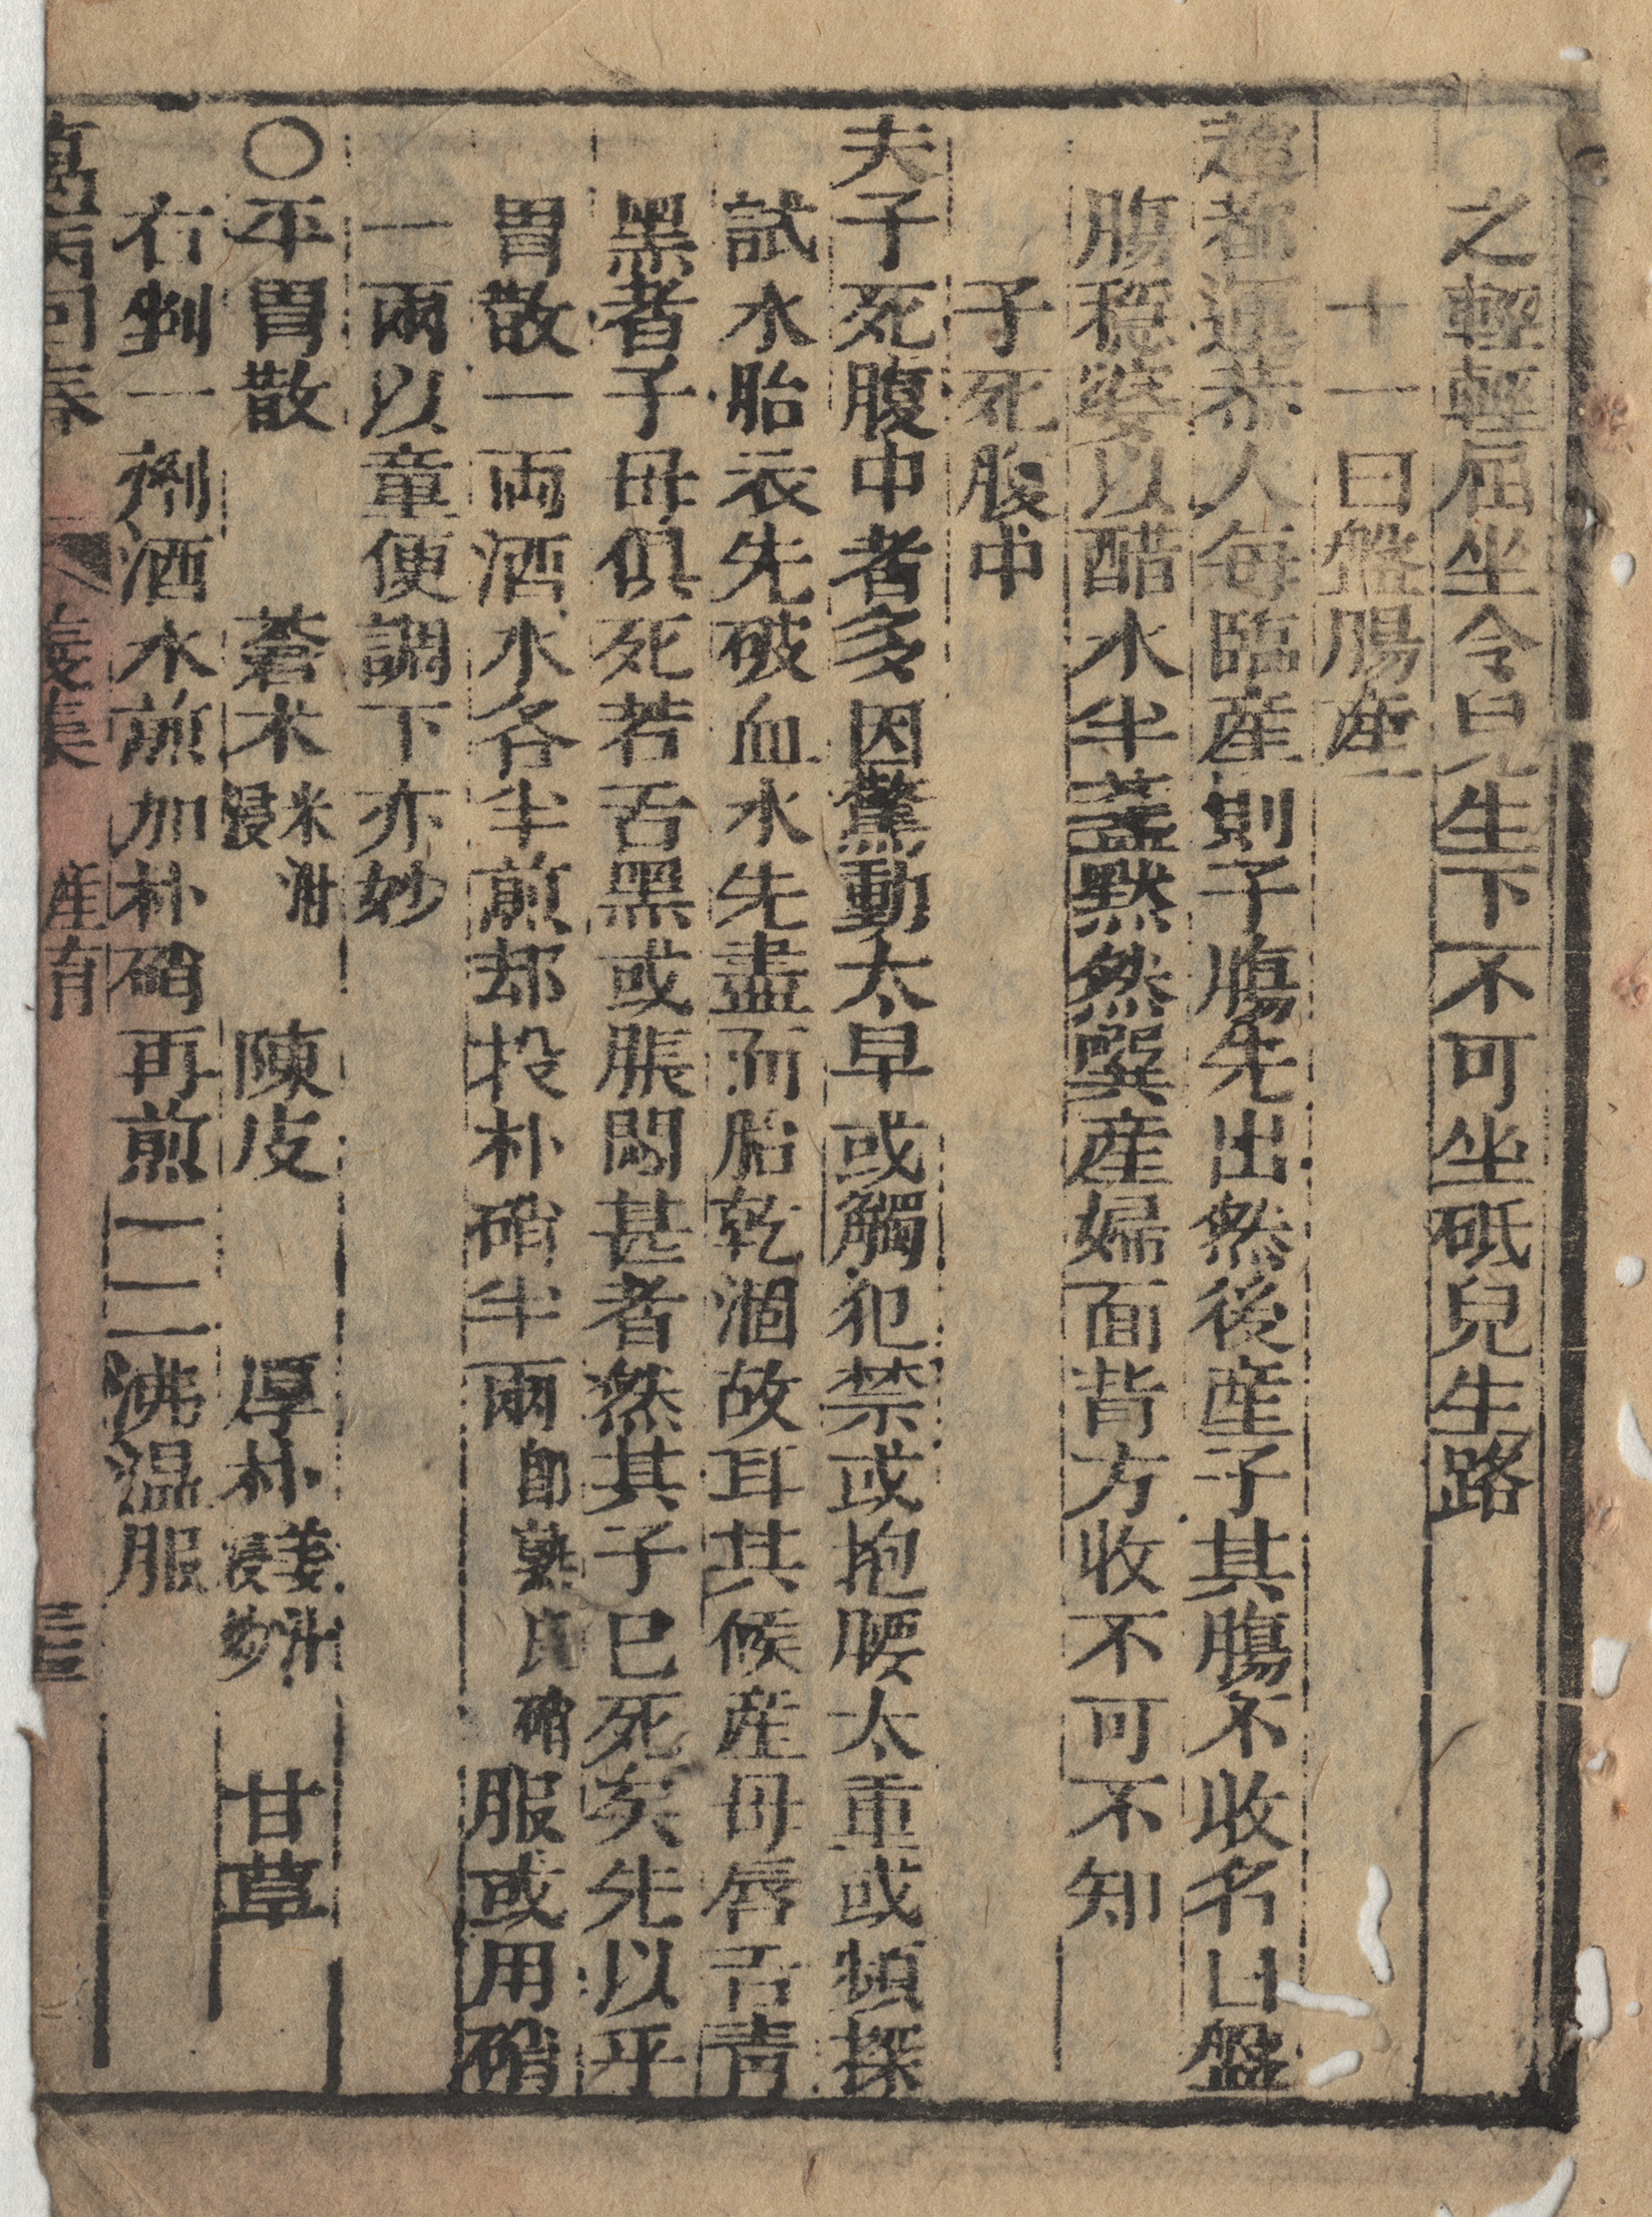 ○之輕輕屈坐令兒生下不可坐砥兒生路
十一曰盤腸産
趙都運恭人每臨産則子膓先出然後産子其膓不收名曰盤
膓穩婆以醋水半盞默然噀産婦面背方收不可不知
子死腹中
夫子死腹中者多因驚動太早或觸犯禁或抱腰太重或頻探
試水胎衣先破血水先盡而胎乾涸故耳其候産母唇舌青
黑者子母俱死若舌黑或脹悶甚者然其子已死矣先以平
胃散一両酒水各半煎却投朴硝半兩即熟皮硝服或用硝
一兩以童便調下亦妙
○平胃散 蒼朮米泔浸 陳皮 厚朴姜汁浸炒 甘草
右剉一劑酒水煎加朴硝再煎一二沸温服
萬病回春 產育